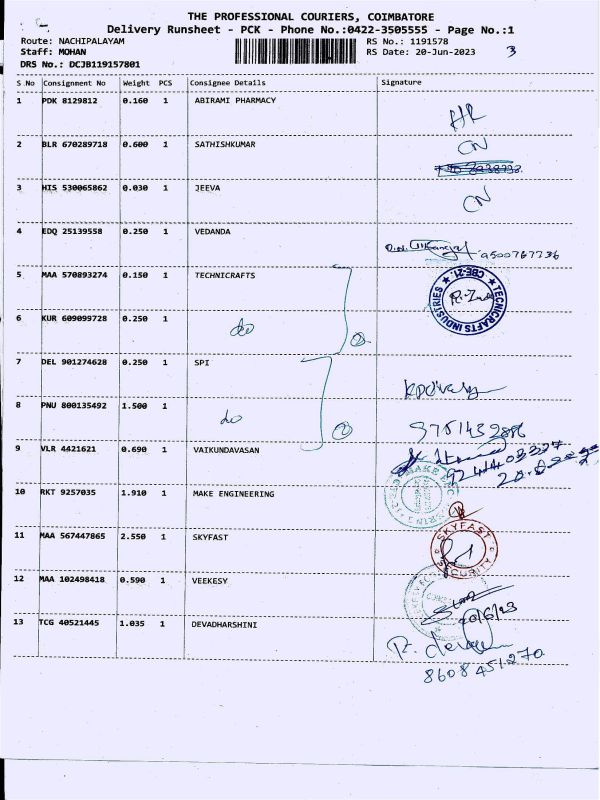 THE PROFESSIONAL COURIERS, COIMBATORE
Delivery Runsheet - PCK - Phone No.:0422-3505555 - Page No.:1
Route: NACHIPALAYAM
Staff: MOHAN
DRS No.: DCJB119157801
RS No.: 1191578
RS Date: 20-Jun-2023
3
S.No Consignment No Weight PCS Consignee Details Signature
1 PDK 8129812 0.160 1 ABIRAMI PHARMACY
2 BLR 670289718 0.600 1 SATHISHKUMAR CN
3 HIS 530065862 0.030 1 JEEVA CN
4 EDQ 25139558 0.250 1 VEDANDA 9500767736
5 MAA 570893274 0.150 1 TECHNICRAFTS
TECNICRAFTS INDUSTRIES ★ CBE-21. ★
6 KUR 609099728 0.250 1 do 2
7 DEL 901274628 0.250 1 SPI
8 PNU 800135492 1.500 1 do 2
9 VLR 4421621 0.690 1 VAIKUNDAVASAN
10 RKT 9257035 1.910 1 MAKE ENGINEERING
11 MAA 567447865 2.550 1 SKYFAST
SKYFAST SECURITY
12 MAA 102498418 0.590 1 VEEKESY
20/6/23
13 TCG 40521445 1.035 1 DEVADHARSHINI
8608451270